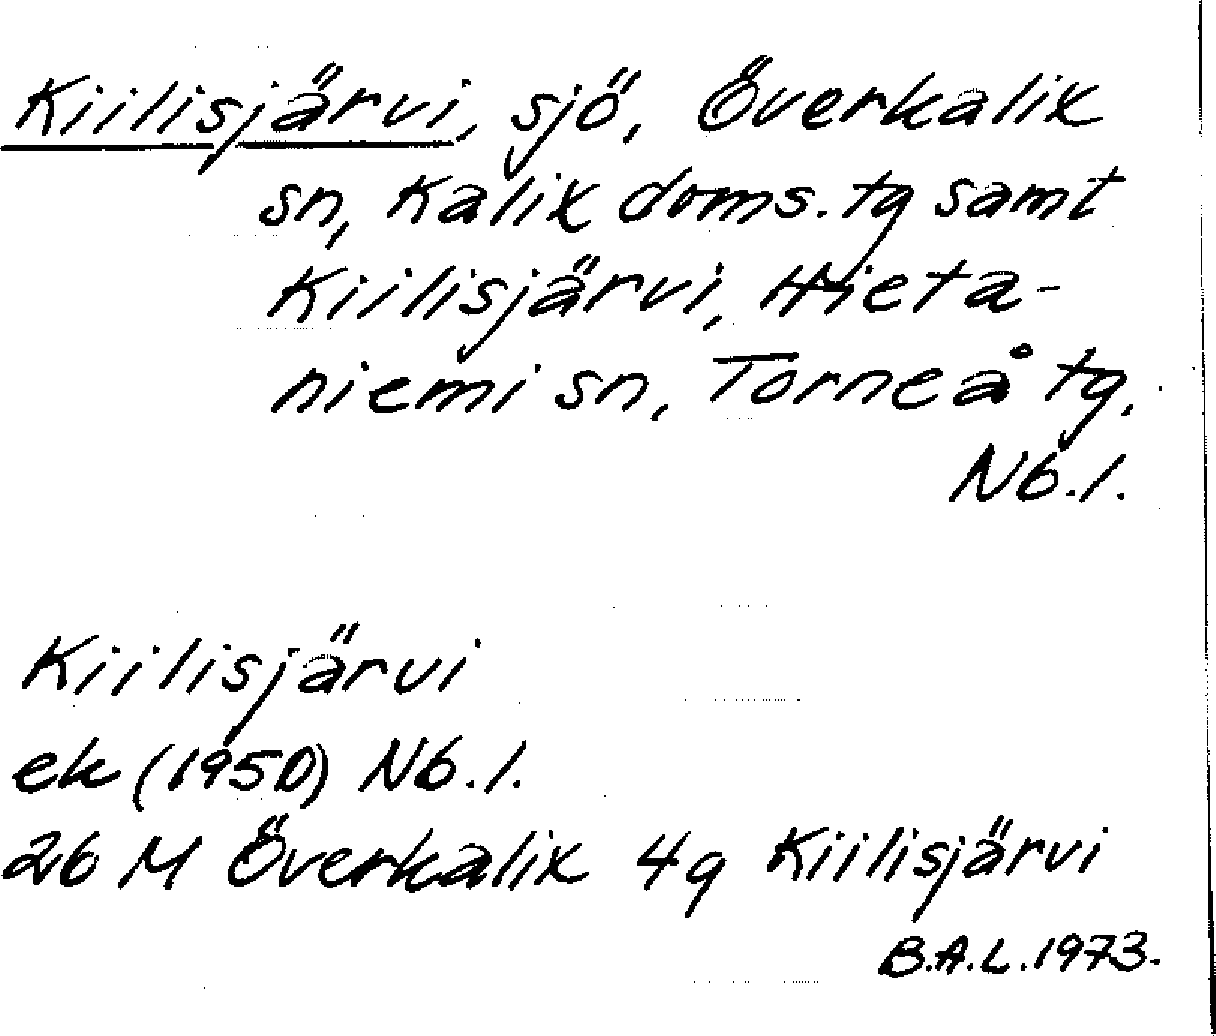 Kiilisjärvi, sjö, Överkalix
sn, Kalix doms. tg samt
Kiilisjärvi, Hieta-
niemi sn, Torneå tg.
Nb. l.
Kiilisjärvi
ek (1950) Nb. l.
26 M Överkalix 4g Kiilisjärvi
B.A.L. 1973.